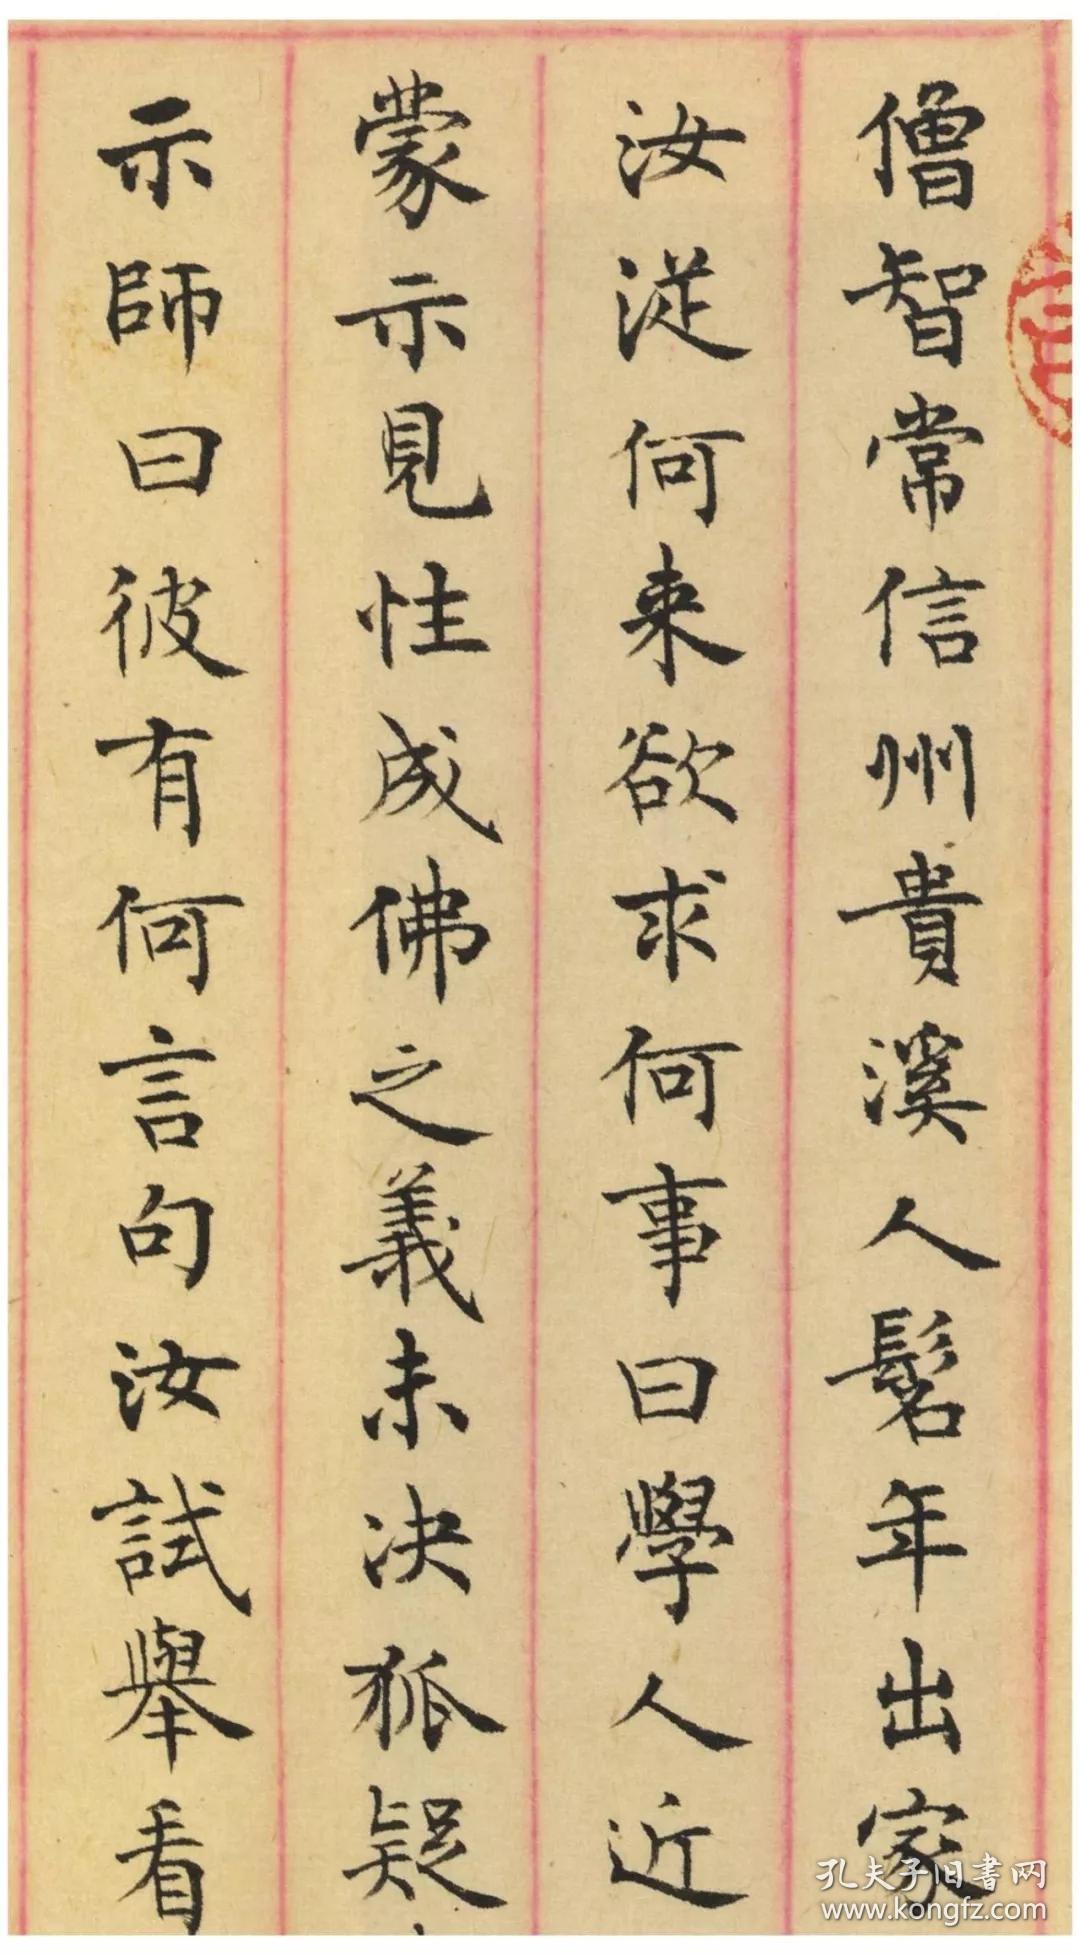 僧智常信州貴溪人髫年出家
汝從何来欲求何事曰學人近
蒙示見性成佛之義未決狐疑
示師曰彼有何言句汝試舉看
孔夫子旧書网
www.kongfz.com